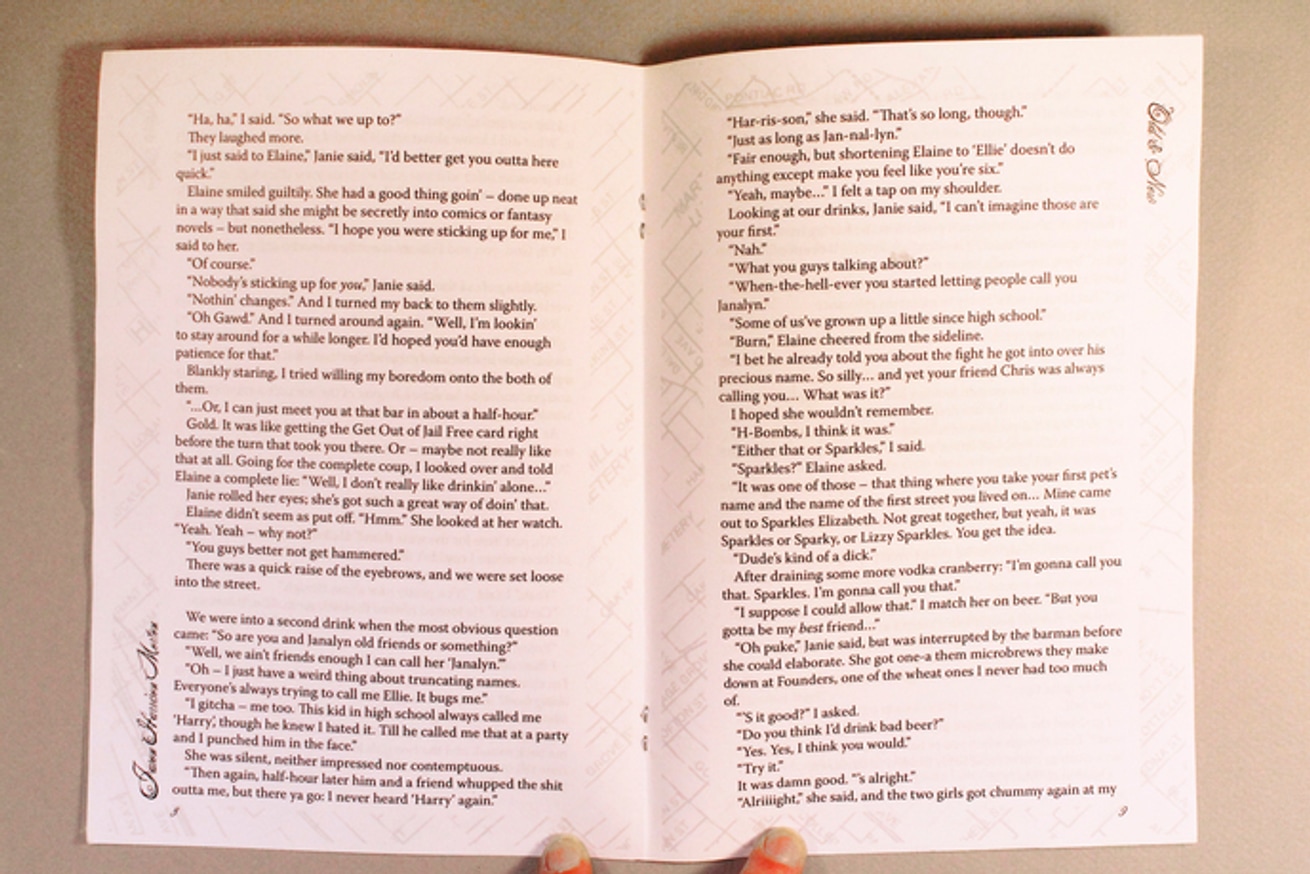 "Ha, ha," I said. "So what we up to?"
They laughed more.
"I just said to Elaine," Janie said, "I'd better get you outta here
quick."
Elaine smiled guiltily. She had a good thing goin' – done up neat
in a way that said she might be secretly into comics or fantasy
novels – but nonetheless. "I hope you were sticking up for me," I
said to her.
"Of course."
"Nobody's sticking up for you," Janie said.
"Nothin' changes." And I turned my back to them slightly.
"Oh Gawd." And I turned around again. "Well, I'm lookin'
to stay around for a while longer. I'd hoped you'd have enough
patience for that."
Blankly staring, I tried willing my boredom onto the both of
them.
"...Or, I can just meet you at that bar in about a half-hour."
Gold. It was like getting the Get Out of Jail Free card right
before the turn that took you there. Or – maybe not really like
that at all. Going for the complete coup, I looked over and told
Elaine a complete lie: "Well, I don't really like drinkin' alone..."
Janie rolled her eyes; she's got such a great way of doin' that.
Elaine didn't seem as put off. "Hmm." She looked at her watch.
"Yeah. Yeah – why not?"
"You guys better not get hammered."
There was a quick raise of the eyebrows, and we were set loose
into the street.
We were into a second drink when the most obvious question
came: "So are you and Janalyn old friends or something?"
"Well, we ain't friends enough I can call her 'Janalyn.'"
"Oh – I just have a weird thing about truncating names.
Everyone's always trying to call me Ellie. It bugs me."
"I gitcha – me too. This kid in high school always called me
'Harry', though he knew I hated it. Till he called me that at a party
and I punched him in the face."
She was silent, neither impressed nor contemptuous.
"Then again, half-hour later him and a friend whupped the shit
outta me, but there ya go: I never heard 'Harry' again."
"Har-ris-son," she said. "That's so long, though."
"Just as long as Jan-nal-lyn."
"Fair enough, but shortening Elaine to 'Ellie' doesn't do
anything except make you feel like you're six."
"Yeah, maybe..." I felt a tap on my shoulder.
Looking at our drinks, Janie said, "I can't imagine those are
your first."
"Nah."
"What you guys talking about?"
"When-the-hell-ever you started letting people call you
Janalyn."
"Some of us've grown up a little since high school."
"Burn," Elaine cheered from the sideline.
"I bet he already told you about the fight he got into over his
precious name. So silly... and yet your friend Chris was always
calling you... What was it?"
I hoped she wouldn't remember.
"H-Bombs, I think it was."
"Either that or Sparkles," I said.
"Sparkles?" Elaine asked.
"It was one of those – that thing where you take your first pet's
name and the name of the first street you lived on... Mine came
out to Sparkles Elizabeth. Not great together, but yeah, it was
Sparkles or Sparky, or Lizzy Sparkles. You get the idea.
"Dude's kind of a dick."
After draining some more vodka cranberry: "I'm gonna call you
that. Sparkles. I'm gonna call you that."
"I suppose I could allow that." I match her on beer. "But you
gotta be my best friend..."
"Oh puke," Janie said, but was interrupted by the barman before
she could elaborate. She got one-a them microbrews they make
down at Founders, one of the wheat ones I never had too much
of.
"'S it good?" I asked.
"Do you think I'd drink bad beer?"
"Yes. Yes, I think you would."
"Try it."
It was damn good. "'s alright."
"Alriiiight," she said, and the two girls got chummy again at my
9